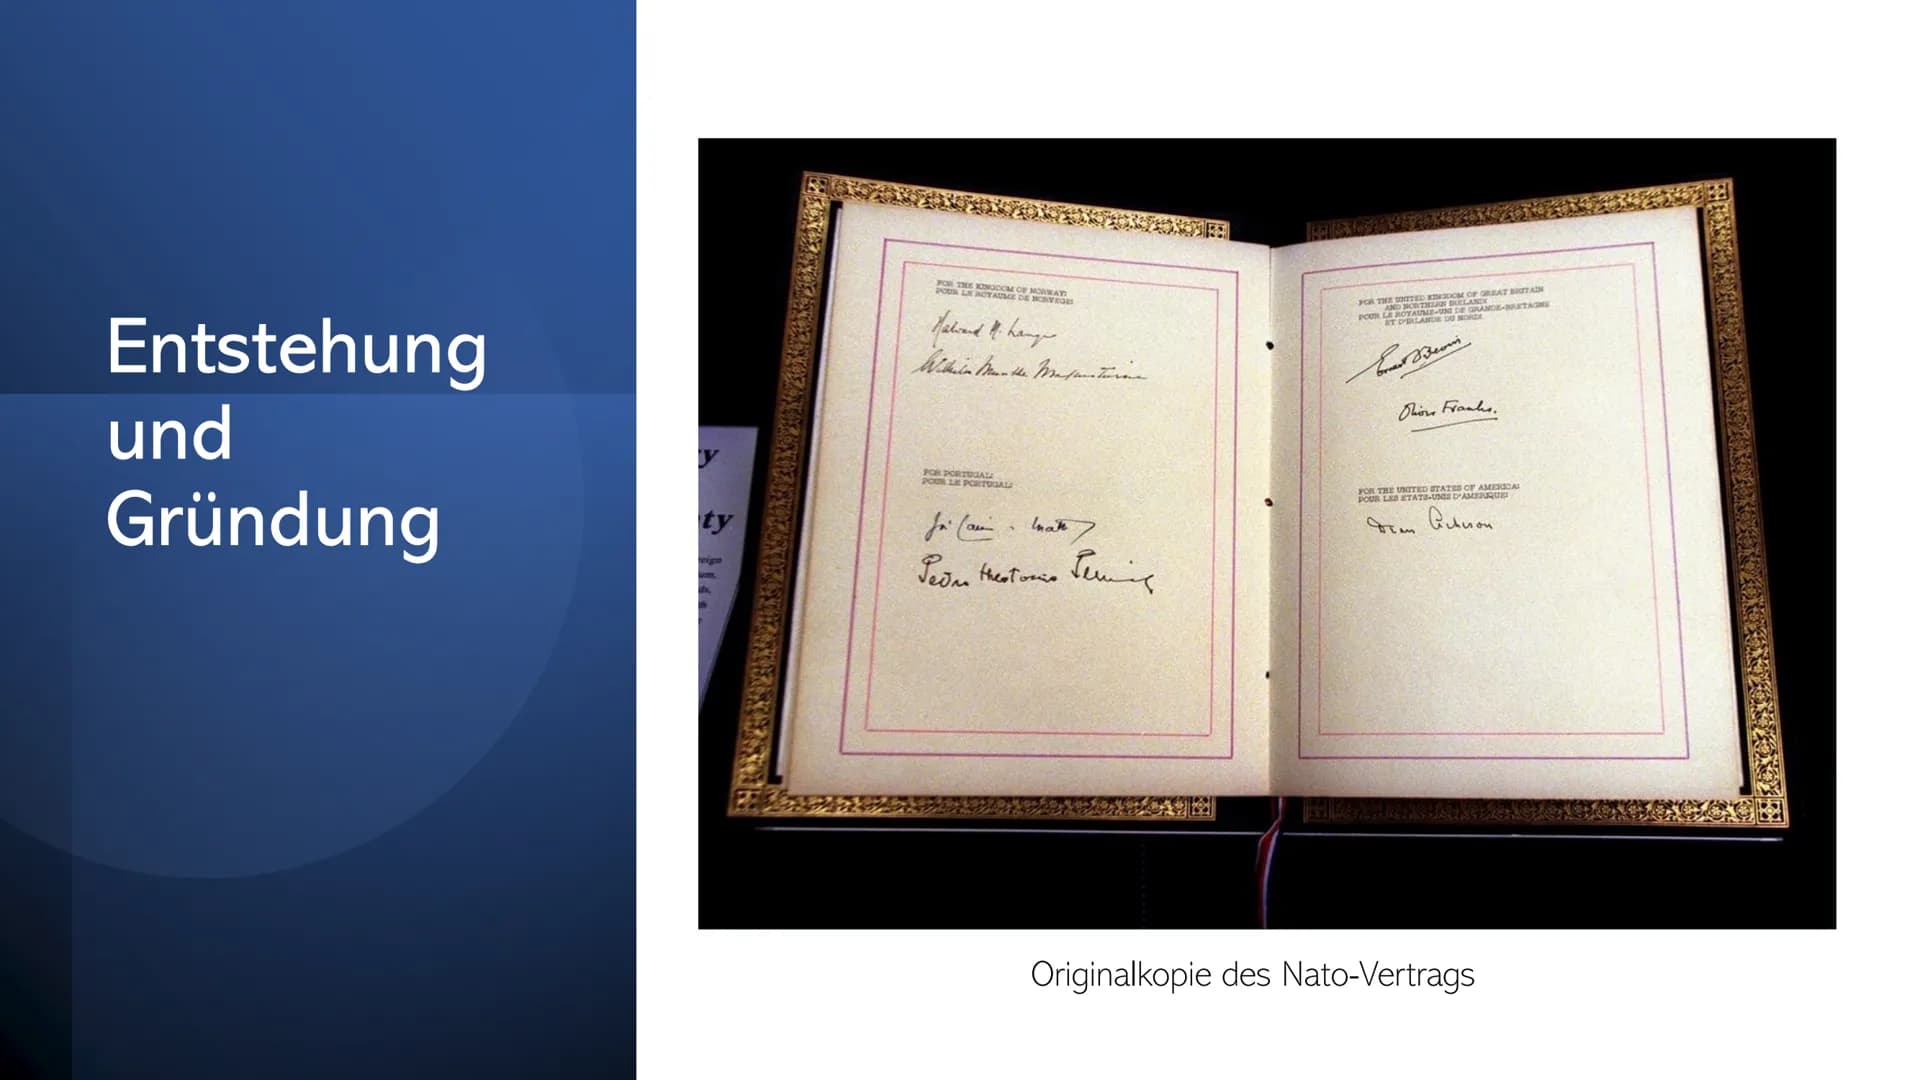 Entstehung
und
Gründung
FOR THE KINGDOM OF NORWAY:
POUR LE ROYAUME DE NORVEGE:
Halvard M. Lange
Wilhelm Munthe Morgenstierne
FOR PORTUGAL:
POUR LE PORTUGAL:
Pedro Theotonio Pereira
FOR THE UNITED KINGDOM OF GREAT BRITAIN
AND NORTHERN IRELAND:
POUR LE ROYAUME-UNI DE GRANDE-BRETAGNE
ET D'IRLANDE DU NORD:
Ernest Bevin
Oliver Franks.
FOR THE UNITED STATES OF AMERICA:
POUR LES ETATS-UNIS D'AMERIQUE:
Dean Acheson
Originalkopie des Nato-Vertrags